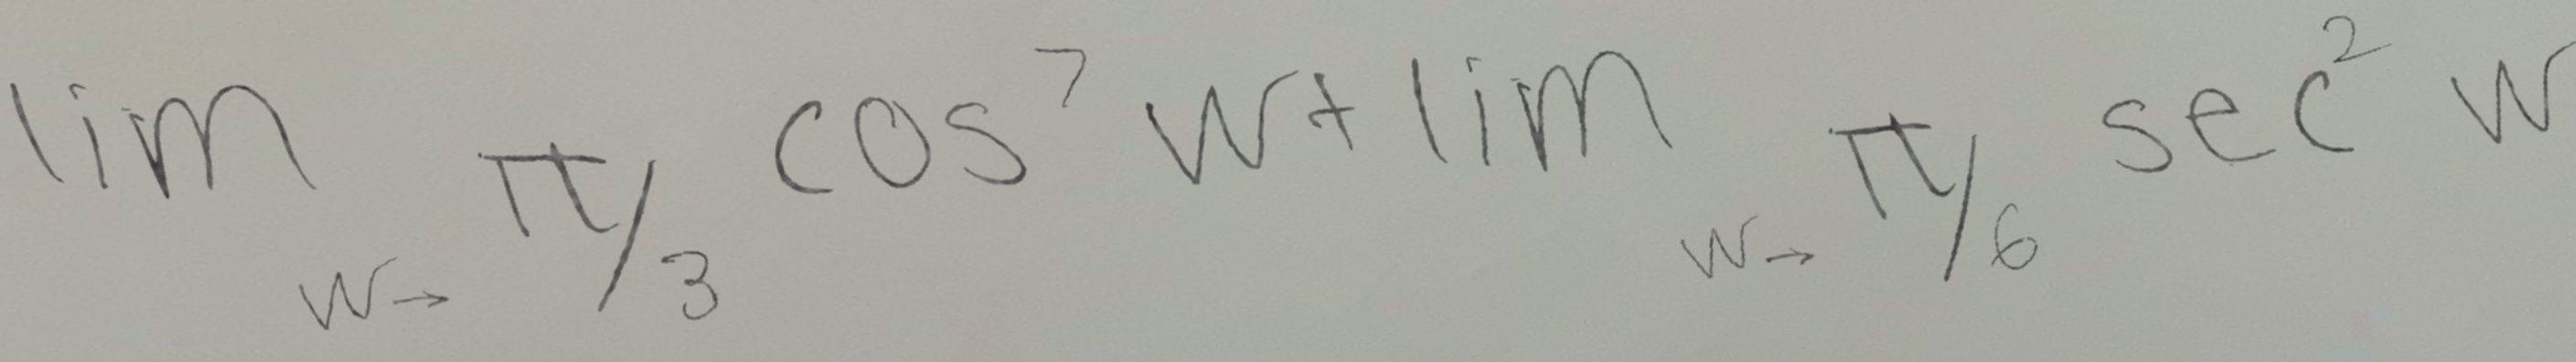 lim w→ π/3 cos⁷ w + lim w→ π/6 sec² w